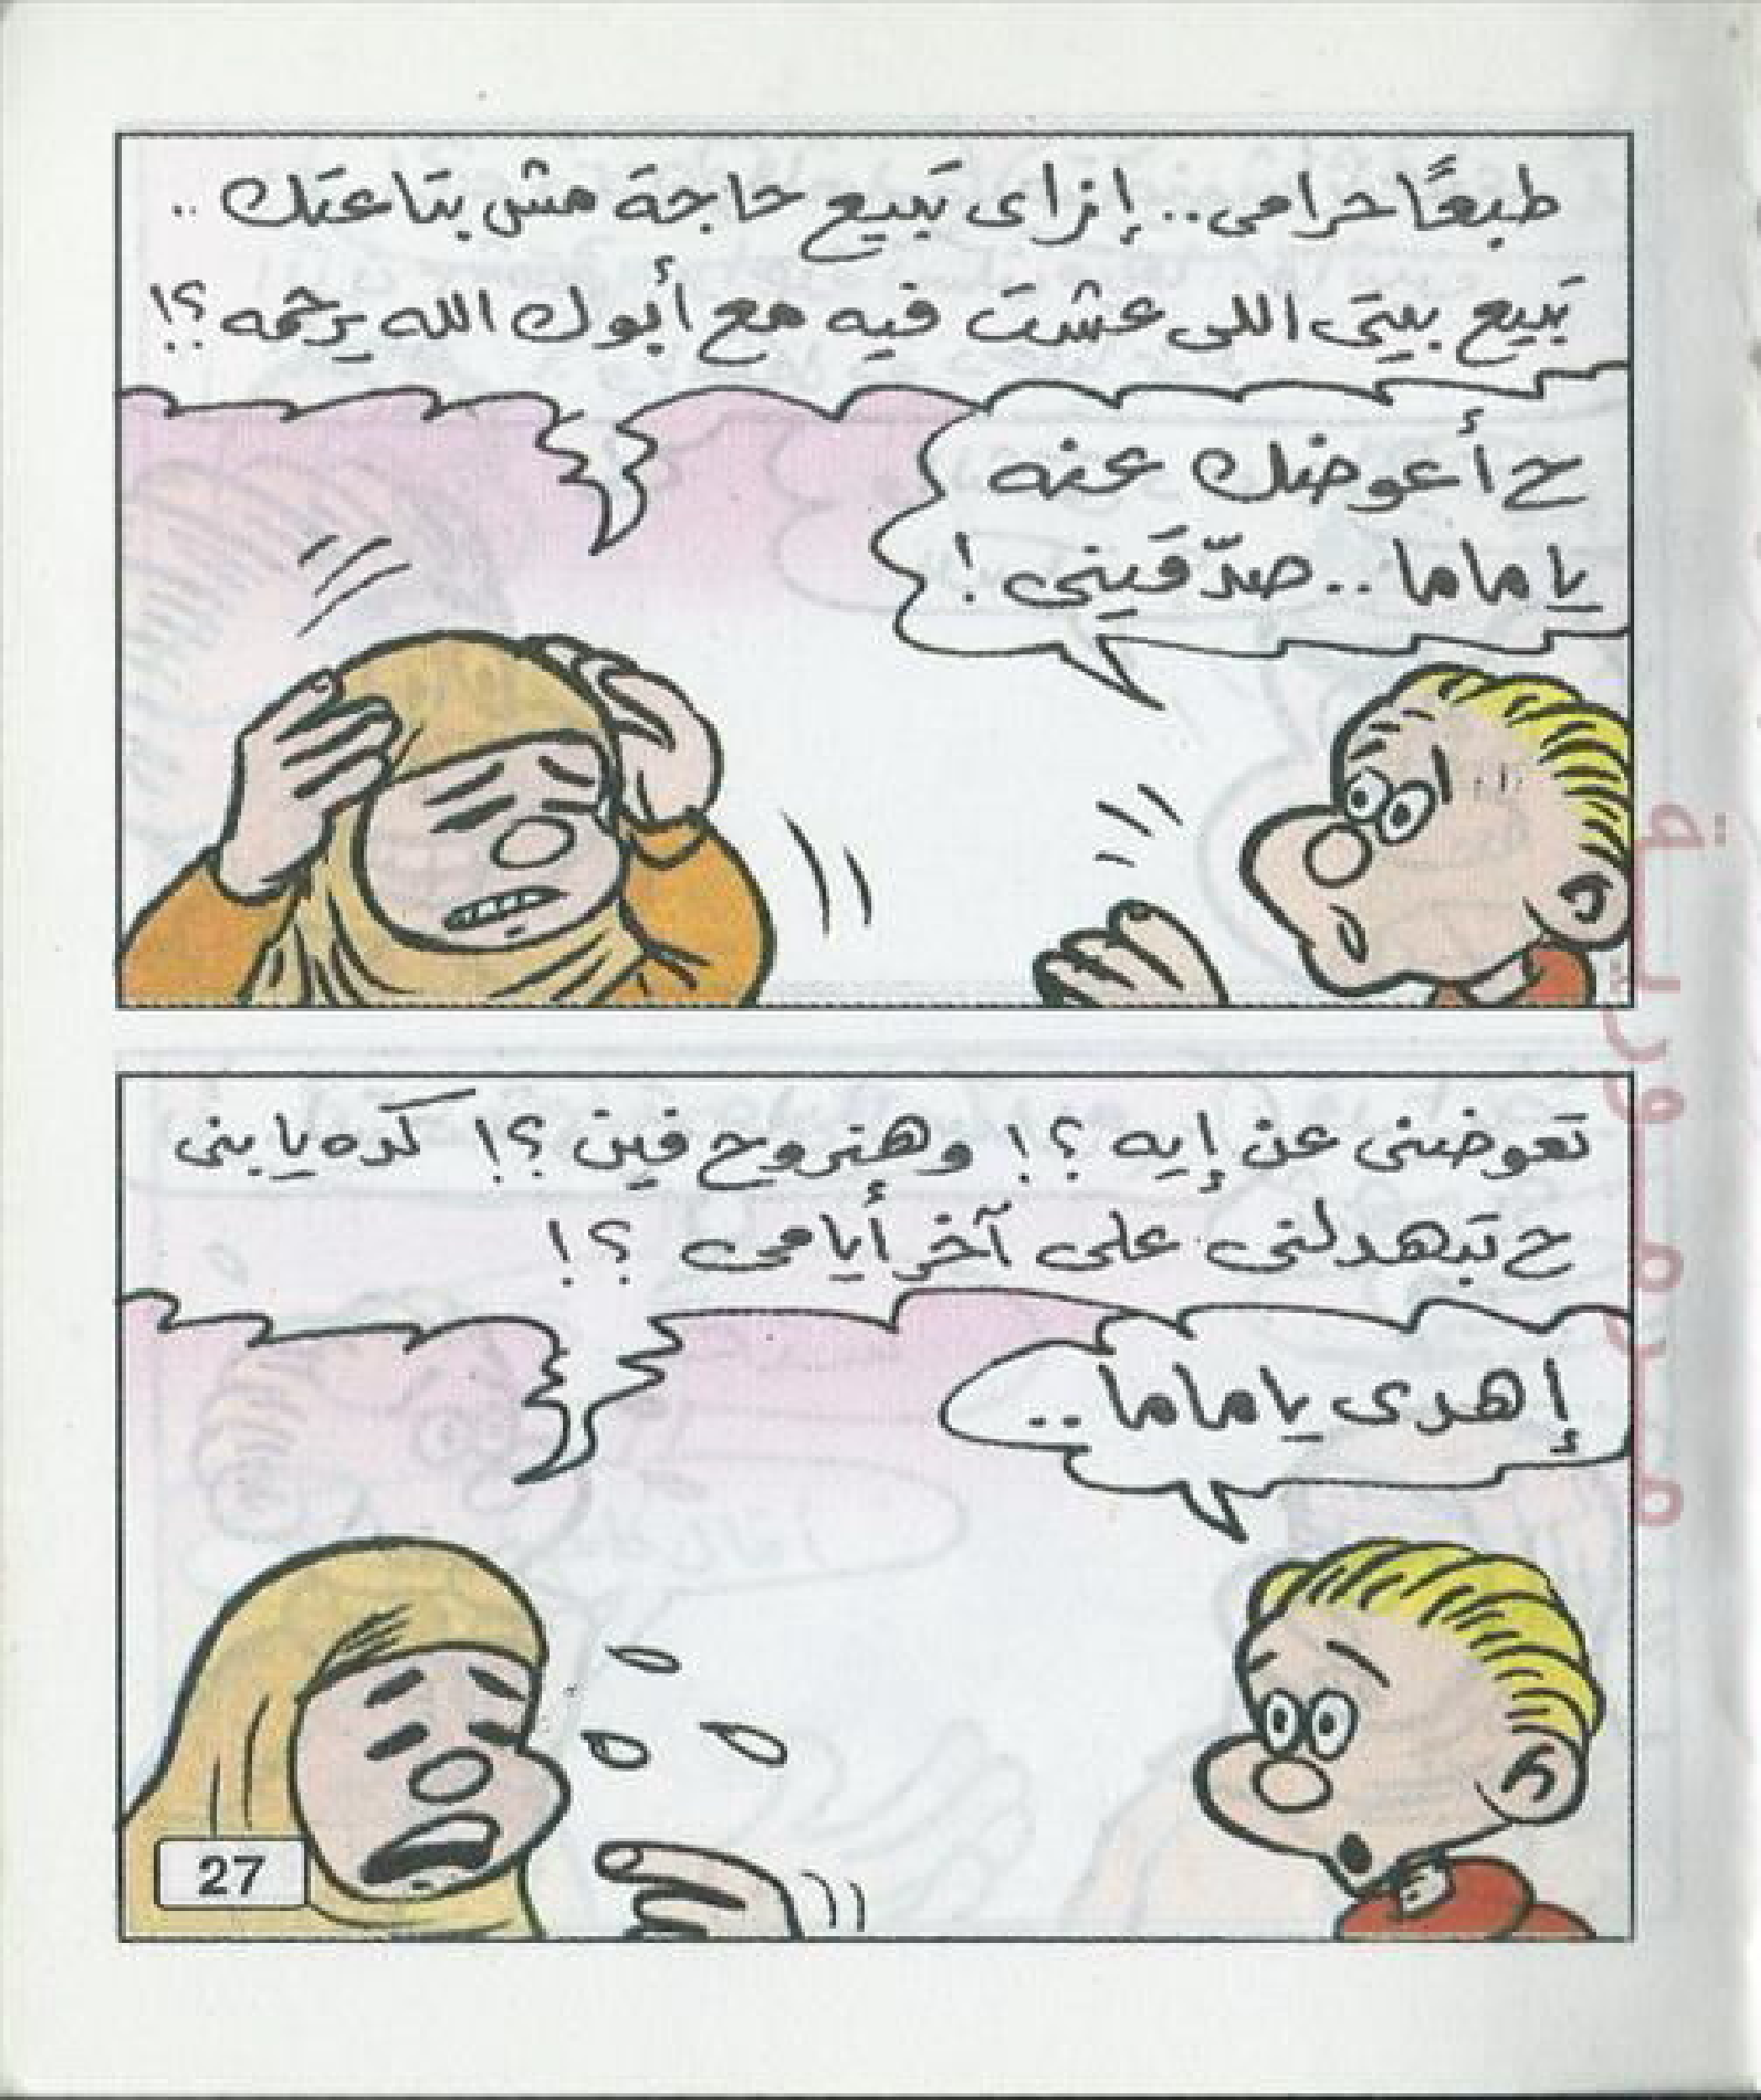 طبعًا حرامى.. إزاى تَبيع حاجة مش بتاعتَك..
تَبيع بيتى اللى عشت فيه مع أبوك الله يرحمه؟!
ح أعوضك عنه
يا ماما.. صدّقينى!
تعوضنى عن إيه؟! وهنروح فين؟! كده يا بنى
ح تبهدلنى على آخر أيامى؟!
إهدى يا ماما..
27